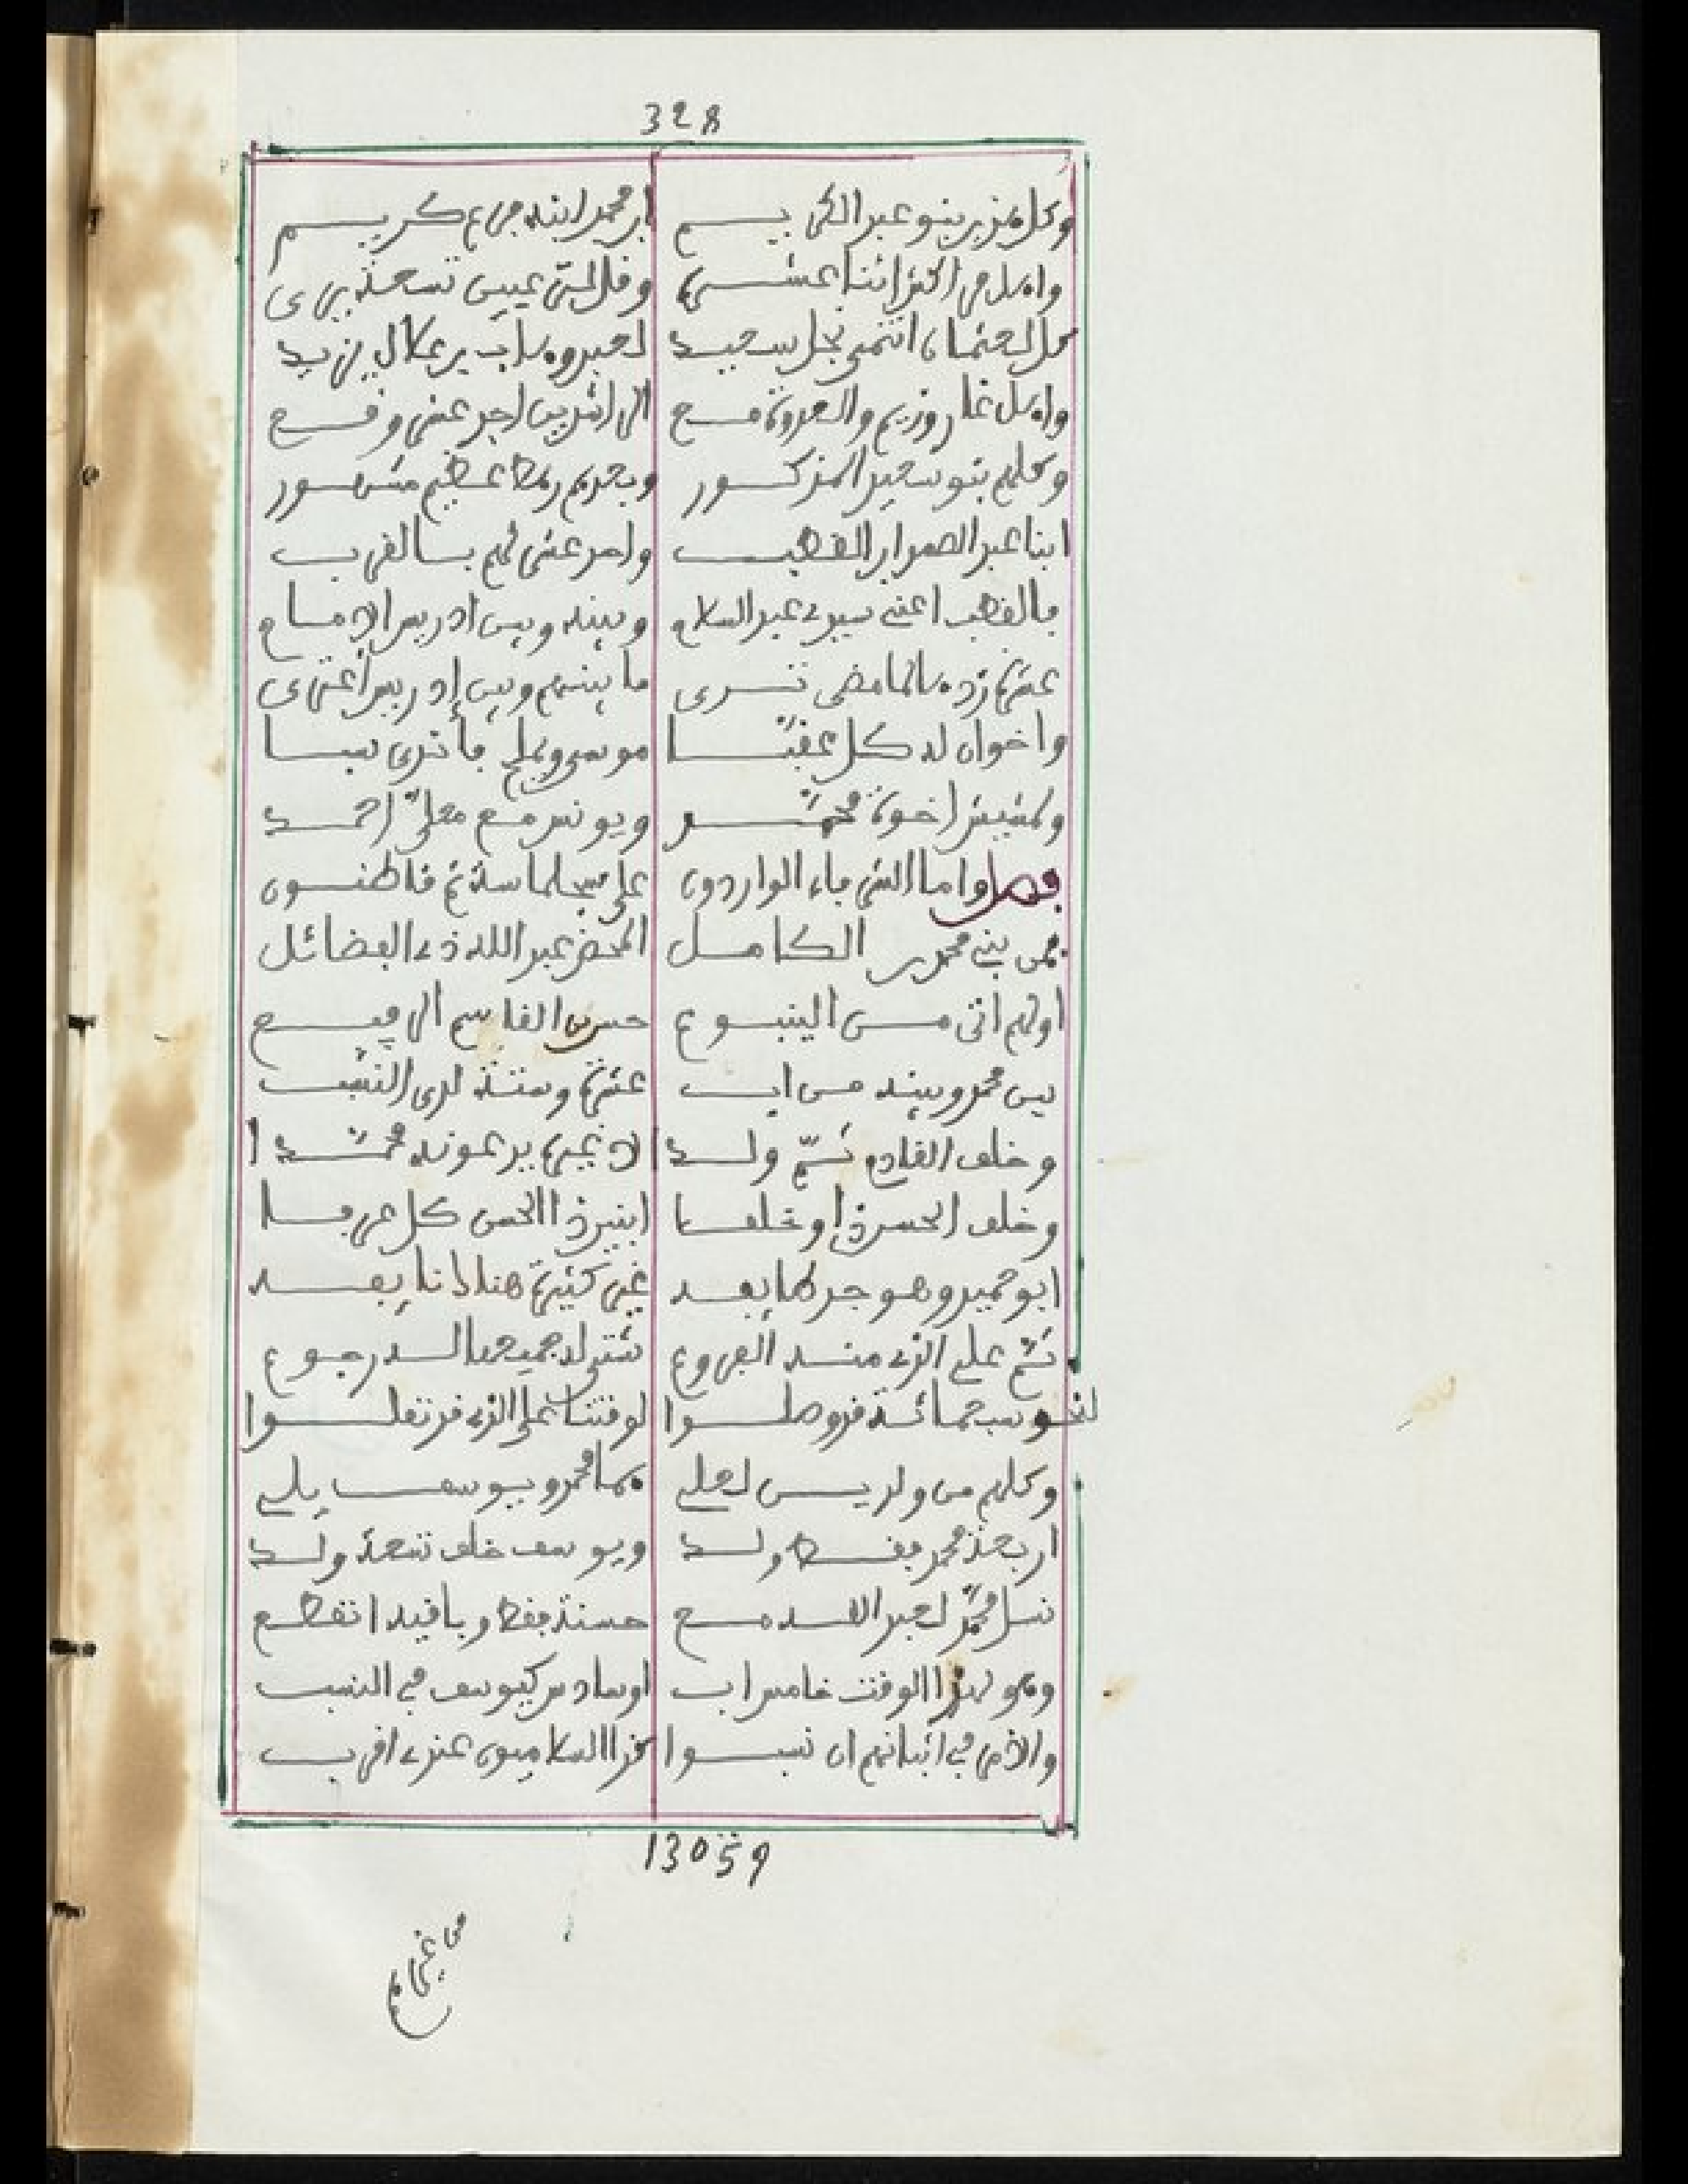 328
وكل هذين بنو عبد الكريم ابن محمد ابنه جرع كريم
واهل من اكثر اثنا عشر وقل لمن عيين تسعة يرى
كل لعثمان انتمى نجل سعيد لعبد وهاب بن علال يزيد
واهل غاروزيم والعدوة مع الراشدين احد عشر وقع
وكلهم بنو سعيد المذكور وبعدهم رهط عظيم مشهور
ابنا عبد الصمد ابن القطب واحد عشر لهم بالقرب
بالقطب اعني سيدي عبد السلام وبينه وبين ادريس الامام
عشرة زده لما مضى ترى ما بينهم وبين إدريس اعترى
واخوان له كل عقبا موسى ويملح فأتدى سبا
ولمشيش اخوة محمد ويونس مع علي احمد
فصل واما الشرفاء الواردون على سجلماسة ثم قاطنون
فمن بني محمد بن الكامل المحض عبد الله ذي الفضائل
اولهم اتى من الينبوع حسن القاسم الرفيع
بين محمد وبينه من اب عشرة وستة لدى النسب
وخلف القادم ثم ولدا لا غيره يدعونه محمدا
وخلف الحسن ذا وخلفا ابنين ذا الحسن كل عرفا
ابو حميد وهو جد لهما بعد غير كثيرة هنا لانا بعد
ثم علي الذي منه الفروع شتى له جميعها له رجوع
لنحو سبعمائة قد وصلوا لوقتنا على الذي قد نقلوا
وكلهم من ولدين لعلي هما محمد ويوسف يلي
اربعة محمد فقط ولد ويوسف خلف تسعة ولد
نسل محمد لعبد الله مع حسنة فقط وباقيه انقطع
وهو لهذا الوقت خامس اب اوسادس كيوسف في النسب
والامر في اثباتهم ان نسبوا كذا السلاميون عندي اقرب
13059